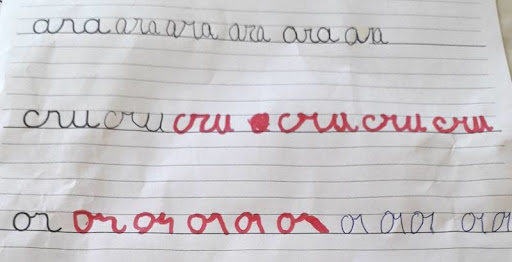 ara ara ara ara ara ara
cru cru cru cru cru cru
or or or or or or or or or or or